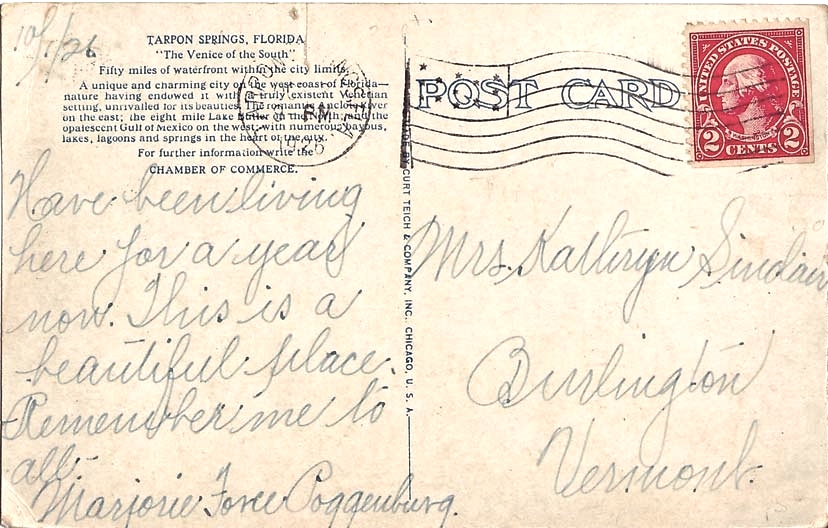 10/1/26
TARPON SPRINGS, FLORIDA
"The Venice of the South"
Fifty miles of waterfront within the city limits.
A unique and charming city on the west coast of Florida—
nature having endowed it with a truly existent Venetian
setting, unrivalled for its beauties. The romantic Anclote river
on the east; the eight mile Lake Butler on the north; and the
opalescent Gulf of Mexico on the west; with numerous bayous,
lakes, lagoons and springs in the heart of the city.
For further information write the
CHAMBER OF COMMERCE.
PM
1926
Have been living
here for a year
now. This is a
beautiful place.
Remember me to
all.
Marjorie Force Poggenburg.
MADE BY CURT TEICH & COMPANY, INC. CHICAGO, U. S. A.
POST CARD
UNITED STATES POSTAGE
WASHINGTON
2 CENTS 2
Mrs. Kathryn Sinclair
Burlington
Vermont.